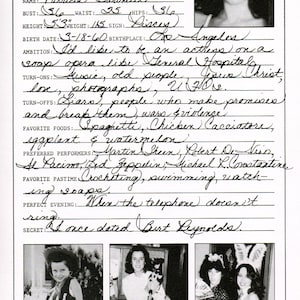 BUST: 36 WAIST: 25 HIPS: 36
HEIGHT: 5'3" WEIGHT: 115 SIGN: Pisces
BIRTH DATE: 3-18-60 BIRTHPLACE: Los Angeles
AMBITION: I'd like to be an actress on a
soap opera like General Hospital.
TURN-ONS: Music, old people, Jesus Christ,
love, photographs, U.F.O.s.
TURN-OFFS: Liars, people who make promises
and break them, wars & violence
FAVORITE FOODS: Spaghetti, Chicken Cacciatore,
eggplant & watermelon.
PREFERRED PERFORMERS: Martin Sheen, Robert De Niro,
Al Pacino, Led Zeppelin, Michael R. Constantine
FAVORITE PASTIME: Crocheting, swimming, watch-
ing soaps.
PERFECT EVENING: When the telephone doesn't
ring.
SECRET: I once dated Burt Reynolds.